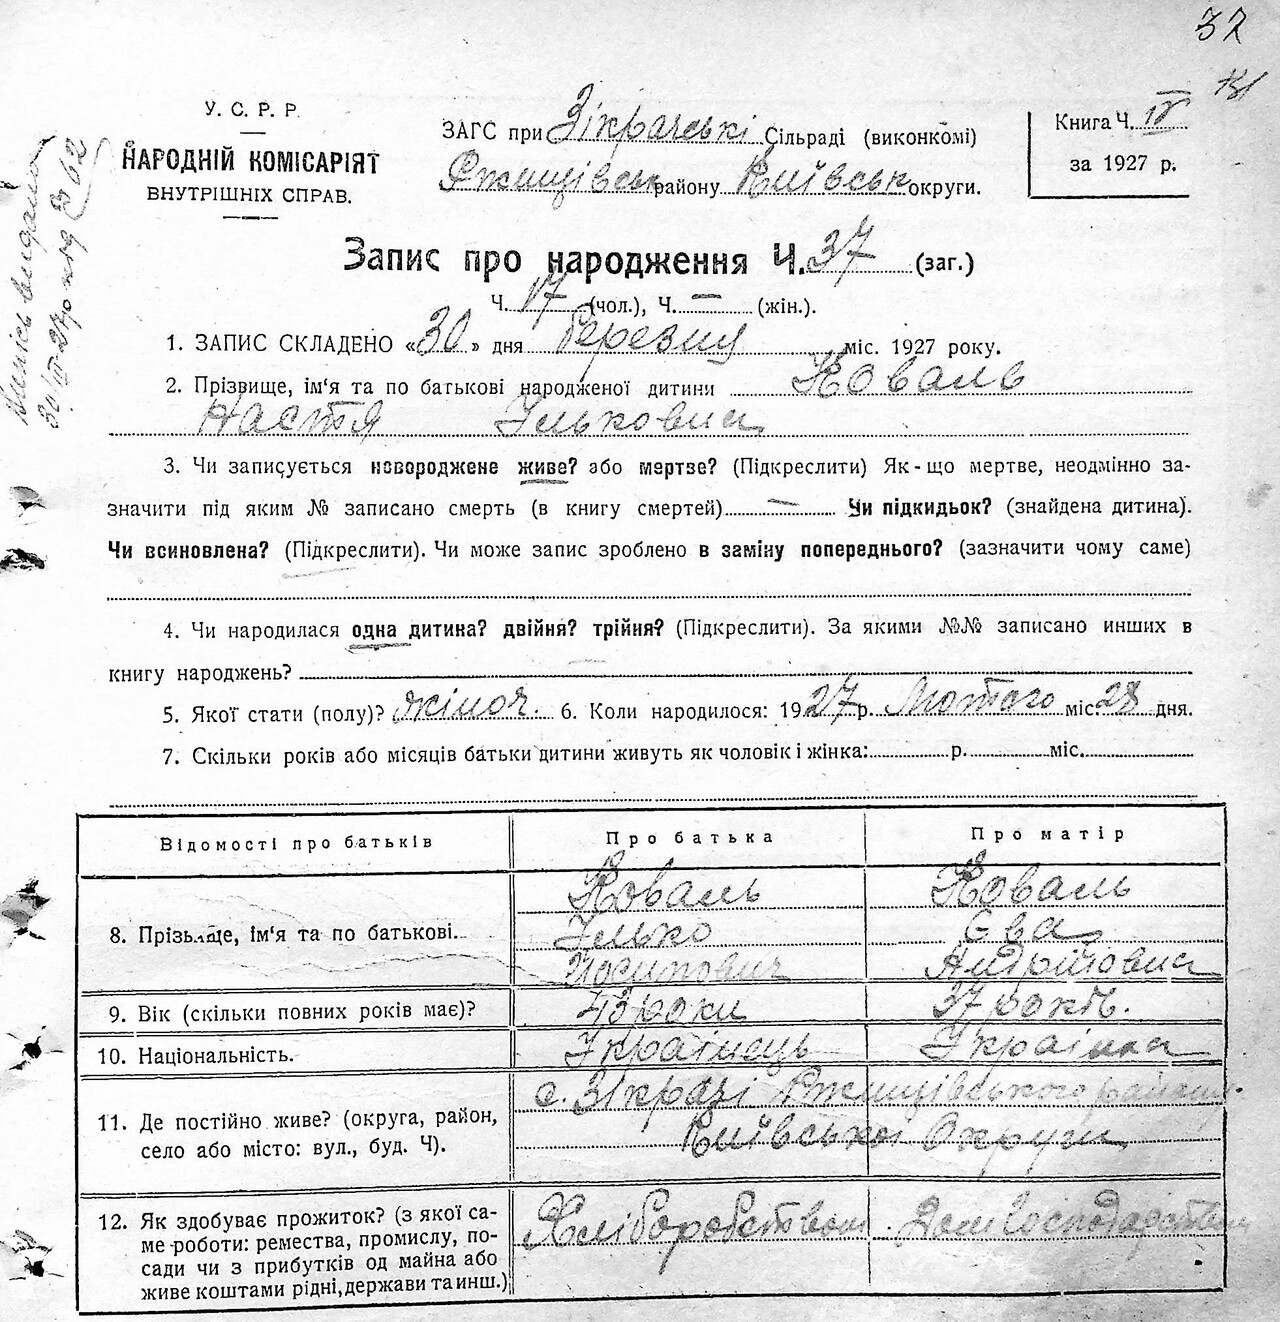 32
У. С. Р. Р.
НАРОДНІЙ КОМІСАРІЯТ
ВНУТРІШНІХ СПРАВ.
ЗАГС при Зікрачські Сільраді (виконкомі)
Ржищівськ району Київськ округи.
Книга Ч. IV
за 1927 р.
Запис про народження Ч. 37 (заг.)
Ч. 17 (чол.), Ч. — (жін.).
1. ЗАПИС СКЛАДЕНО «30» дня березня міс. 1927 року.
2. Прізвище, ім'я та по батькові народженої дитини Коваль
Настя Ільковна
3. Чи записується новороджене живе? або мертве? (Підкреслити) Як-що мертве, неодмінно за-
значити під яким № записано смерть (в книгу смертей) — Чи підкидьок? (знайдена дитина).
Чи всиновлена? (Підкреслити). Чи може запис зроблено в заміну попереднього? (зазначити чому саме)
4. Чи народилася одна дитина? двійня? трійня? (Підкреслити). За якими №№ записано инших в
книгу народжень? —
5. Якої стати (полу)? жіноч. 6. Коли народилося: 1927 р. Лютого міс. 28 дня.
7. Скільки років або місяців батьки дитини живуть як чоловік і жінка: р. міс.
Відомості про батьків Про батька Про матір
Коваль Коваль
8. Прізвище, ім'я та по батькові. Ілько Єва
Йосипович Андріївна
9. Вік (скільки повних років має)? 43 роки 37 років.
10. Національність. Українець Українка
11. Де постійно живе? (округа, район, с. Зікрачі Ржищівського району
село або місто: вул., буд. Ч). Київської Округи
12. Як здобуває прожиток? (з якої са- Хліборобством. Дом господарством
ме роботи: ремества, промислу, по-
сади чи з прибутків од майна або
живе коштами рідні, держави та инш.)